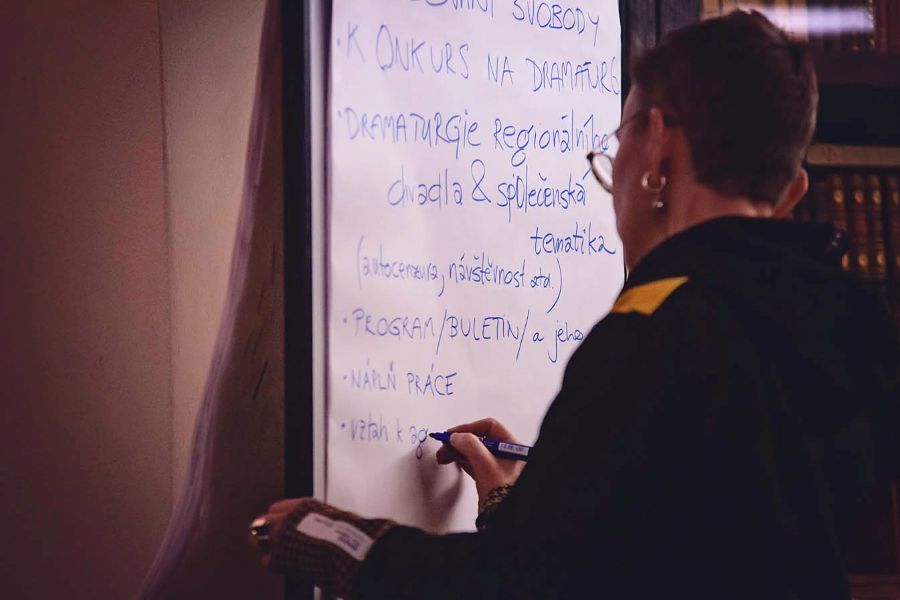 SVOBODY
• KONKURS NA DRAMATURG
• DRAMATURGIE regionálního
divadla & společenská
tematika
(autocenzura, návštěvnost atd.)
• PROGRAM/BULETIN/ a jeho
• NÁPLŇ PRÁCE
• vztah k ag